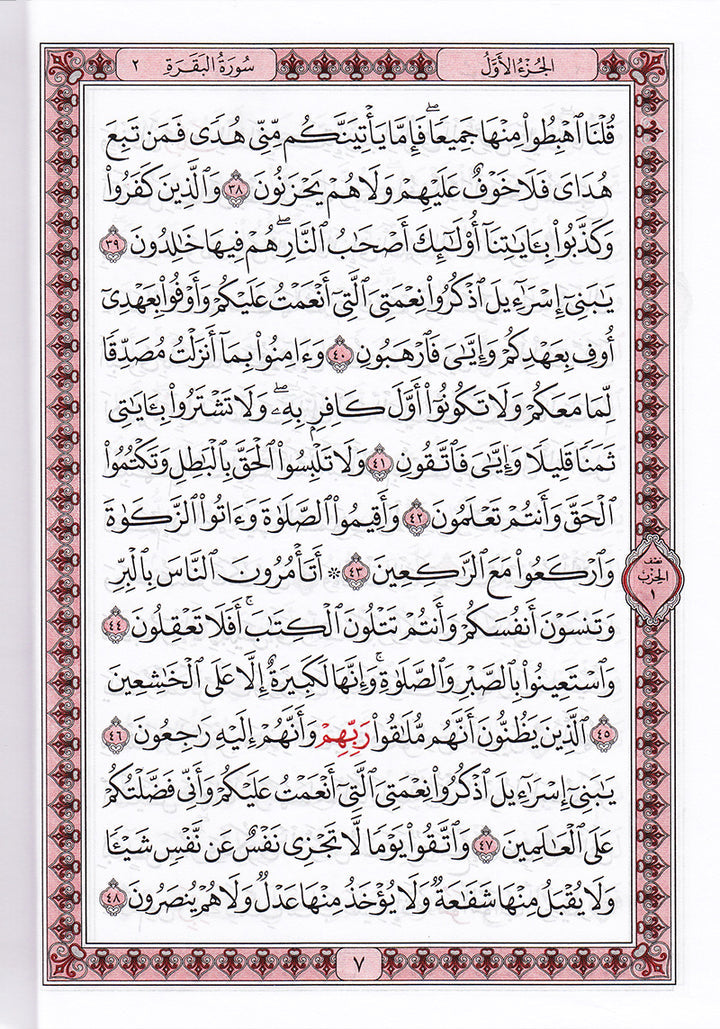 الجُزْءُ الأَوَّلُ
سُورَةُ البَقَرَةِ ٢
قُلْنَا ٱهْبِطُوا۟ مِنْهَا جَمِيعًۭا ۖ فَإِمَّا يَأْتِيَنَّكُم مِّنِّى هُدًۭى فَمَن تَبِعَ
هُدَاىَ فَلَا خَوْفٌ عَلَيْهِمْ وَلَا هُمْ يَحْزَنُونَ ٣٨ وَٱلَّذِينَ كَفَرُوا۟
وَكَذَّبُوا۟ بِـَٔايَـٰتِنَآ أُو۟لَـٰٓئِكَ أَصْحَـٰبُ ٱلنَّارِ ۖ هُمْ فِيهَا خَـٰلِدُونَ ٣٩
يَـٰبَنِىٓ إِسْرَٰٓءِيلَ ٱذْكُرُوا۟ نِعْمَتِىَ ٱلَّتِىٓ أَنْعَمْتُ عَلَيْكُمْ وَأَوْفُوا۟ بِعَهْدِىٓ
أُوفِ بِعَهْدِكُمْ وَإِيَّـٰىَ فَٱرْهَبُونِ ٤٠ وَءَامِنُوا۟ بِمَآ أَنزَلْتُ مُصَدِّقًۭا
لِّمَا مَعَكُمْ وَلَا تَكُونُوٓا۟ أَوَّلَ كَافِرٍۭ بِهِۦ ۖ وَلَا تَشْتَرُوا۟ بِـَٔايَـٰتِى
ثَمَنًۭا قَلِيلًۭا وَإِيَّـٰىَ فَٱتَّقُونِ ٤١ وَلَا تَلْبِسُوا۟ ٱلْحَقَّ بِٱلْبَـٰطِلِ وَتَكْتُمُوا۟
ٱلْحَقَّ وَأَنتُمْ تَعْلَمُونَ ٤٢ وَأَقِيمُوا۟ ٱلصَّلَوٰةَ وَءَاتُوا۟ ٱلزَّكَوٰةَ
وَٱرْكَعُوا۟ مَعَ ٱلرَّٰكِعِينَ ٤٣ ۞ أَتَأْمُرُونَ ٱلنَّاسَ بِٱلْبِرِّ
نصف
الحِزْب
١
وَتَنسَوْنَ أَنفُسَكُمْ وَأَنتُمْ تَتْلُونَ ٱلْكِتَـٰبَ ۚ أَفَلَا تَعْقِلُونَ ٤٤
وَٱسْتَعِينُوا۟ بِٱلصَّبْرِ وَٱلصَّلَوٰةِ ۚ وَإِنَّهَا لَكَبِيرَةٌ إِلَّا عَلَى ٱلْخَـٰشِعِينَ
٤٥ ٱلَّذِينَ يَظُنُّونَ أَنَّهُم مُّلَـٰقُوا۟ رَبِّهِمْ وَأَنَّهُمْ إِلَيْهِ رَٰجِعُونَ ٤٦
يَـٰبَنِىٓ إِسْرَٰٓءِيلَ ٱذْكُرُوا۟ نِعْمَتِىَ ٱلَّتِىٓ أَنْعَمْتُ عَلَيْكُمْ وَأَنِّى فَضَّلْتُكُمْ
عَلَى ٱلْعَـٰلَمِينَ ٤٧ وَٱتَّقُوا۟ يَوْمًۭا لَّا تَجْزِى نَفْسٌ عَن نَّفْسٍۢ شَيْـًۭٔا
وَلَا يُقْبَلُ مِنْهَا شَفَـٰعَةٌۭ وَلَا يُؤْخَذُ مِنْهَا عَدْلٌۭ وَلَا هُمْ يُنصَرُونَ ٤٨
٧